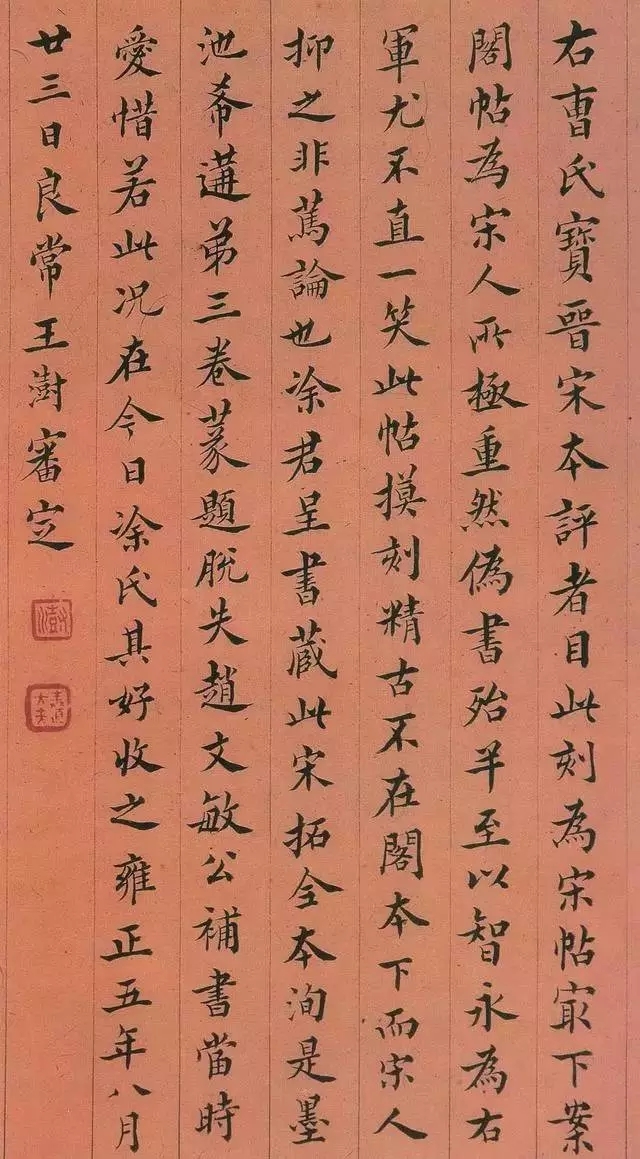 右曹氏寶晉宋本評者目此刻為宋帖㝡下案
閣帖為宋人所極重然偽書殆半至以智永為右
軍尤不直一笑此帖摸刻精古不在閣本下而宋人
抑之非篤論也涂君呈書蔵此宋拓全本洵是墨
池希遘弟三卷篆題脫失趙文敏公補書當時
愛惜若此況在今日涂氏其好收之雍正五年八月
廿三日良常王澍審定
澍